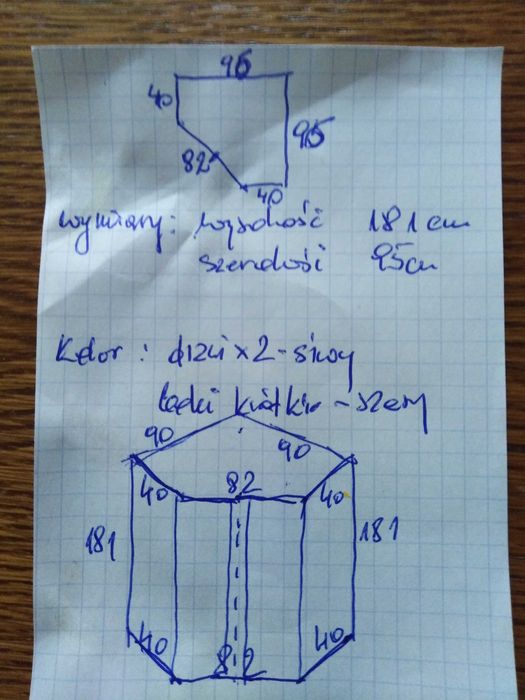 95
40
95
82
40
wymiary: wysokość 181 cm
szerokość 95 cm
Kolor: drzwi x 2 - siwy
boki krótkie - szary
90 90
40 82 40
181 181
40 82 40